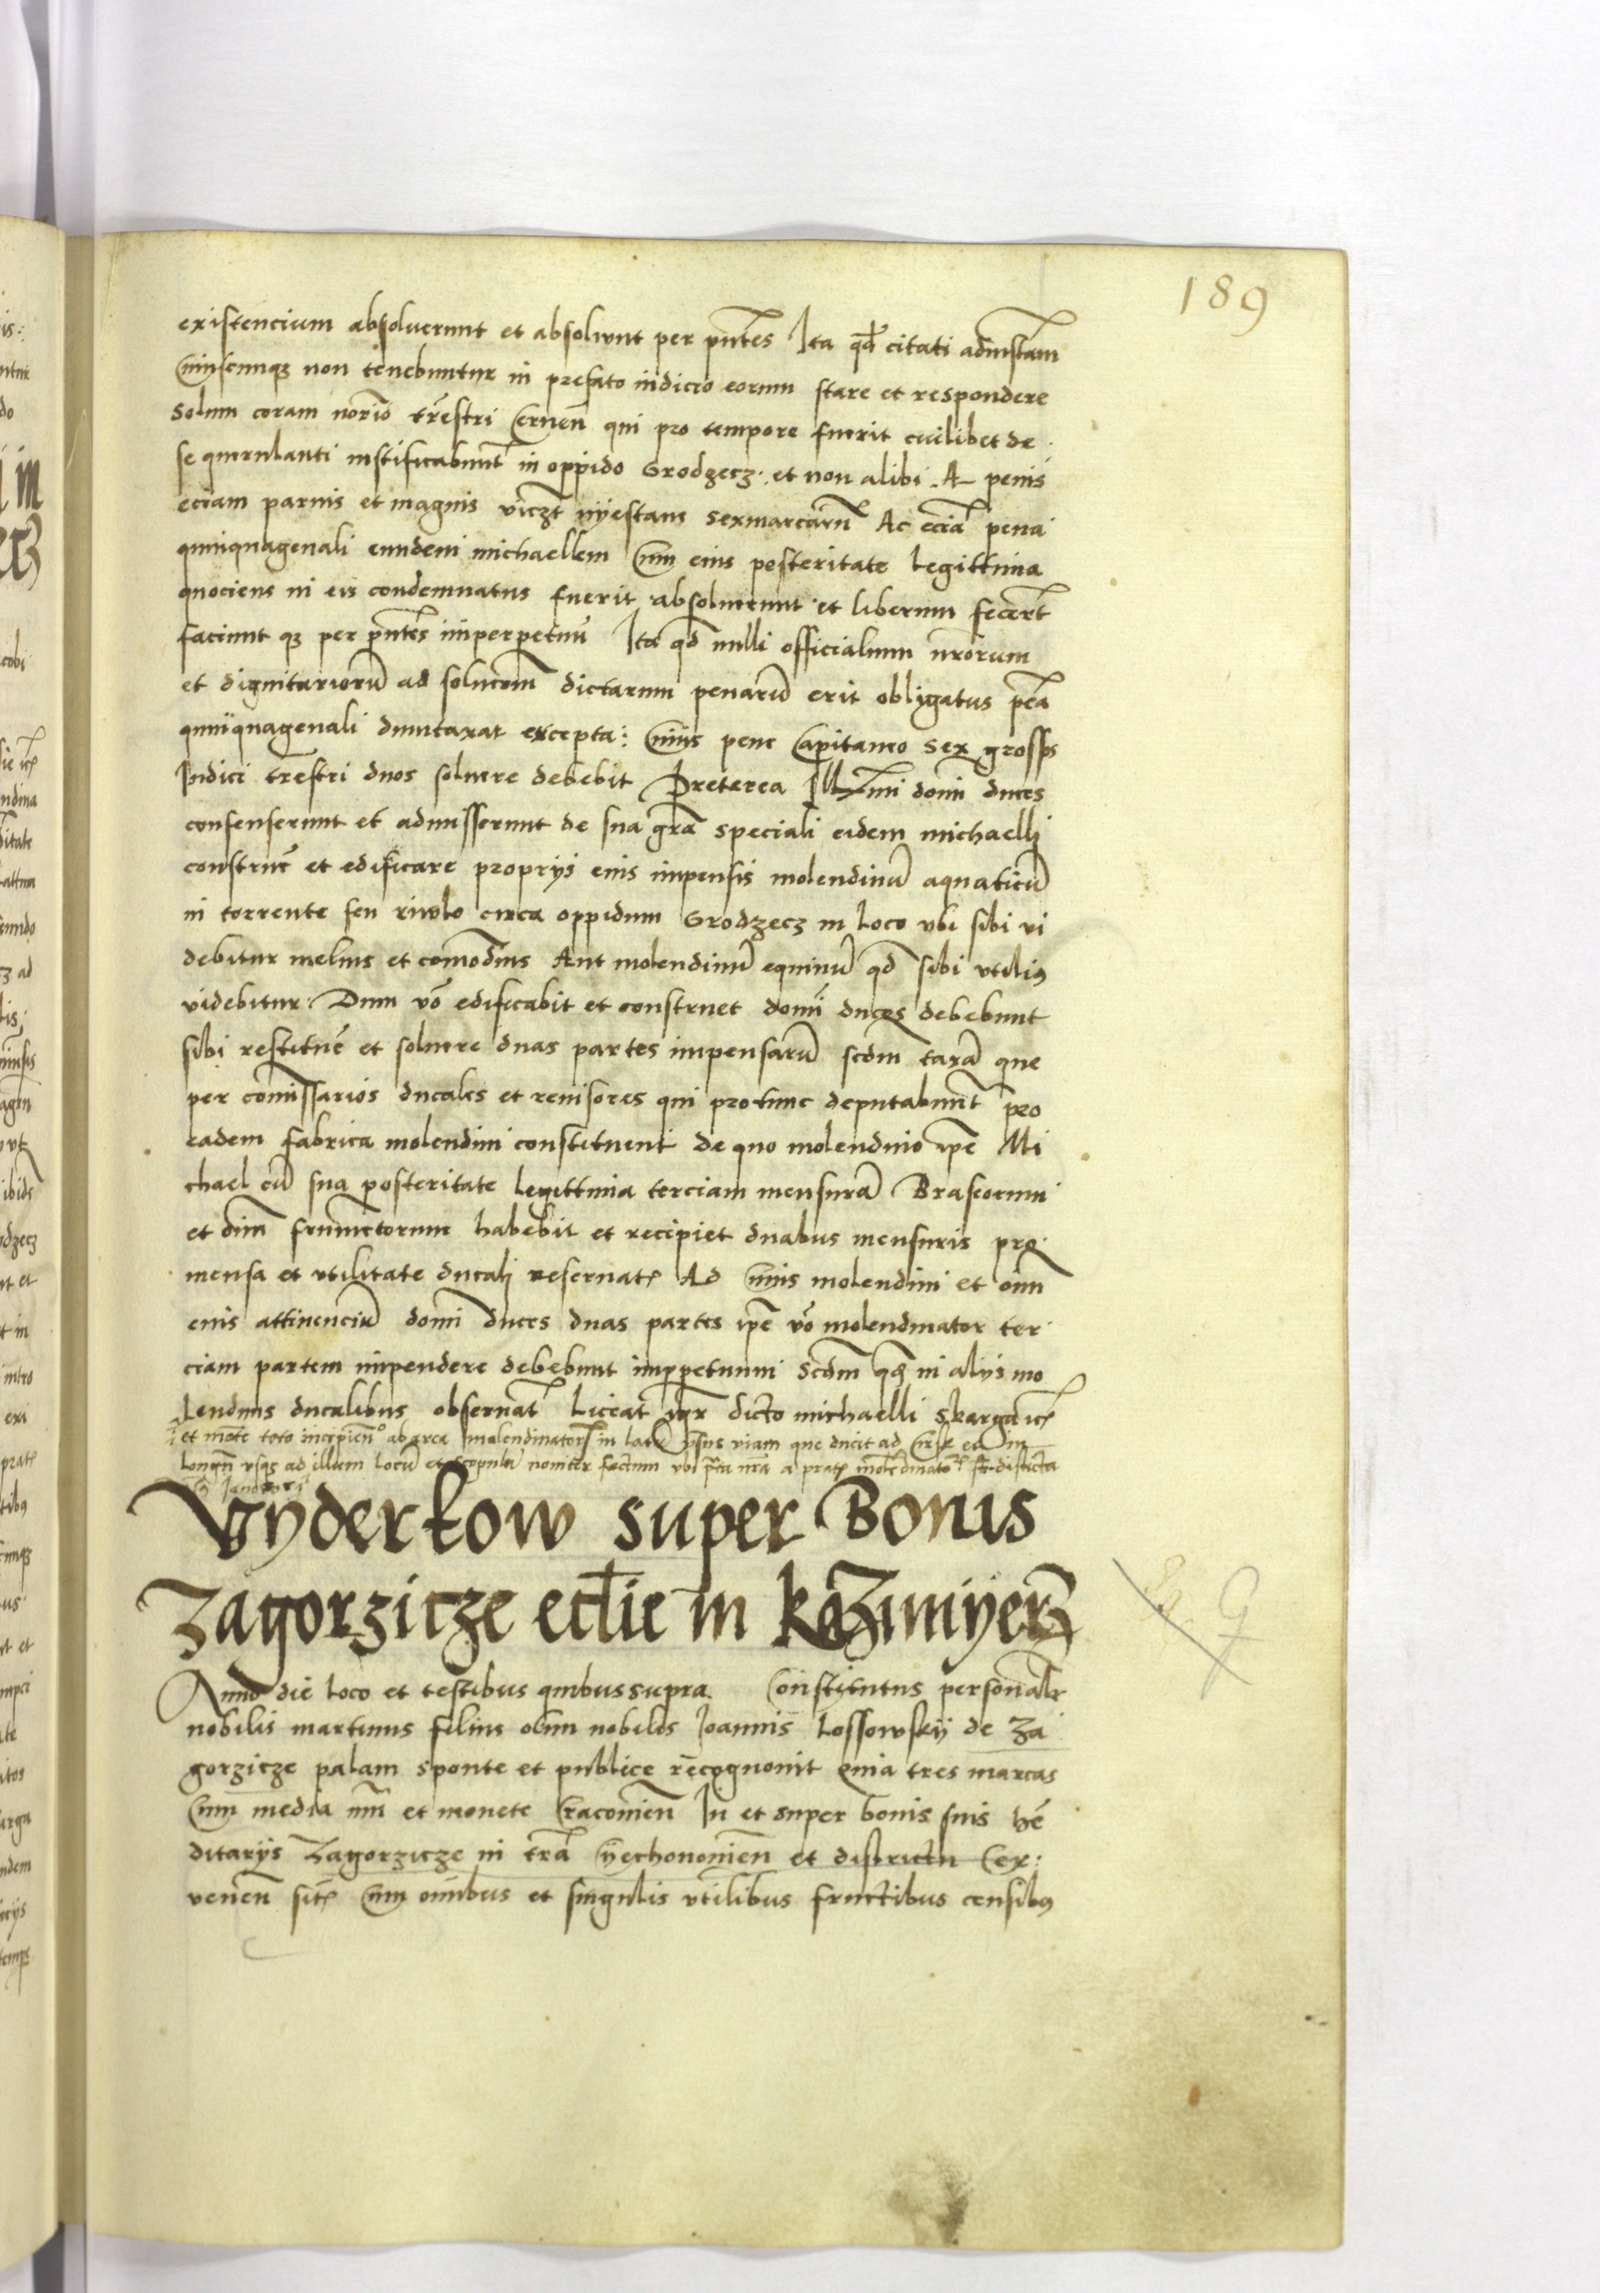 189
existencium absoluerunt et absoluunt per pñtes Ita qđ citati ad instãm
Cuiuscunqz non tenebuntur in prefato iudicio eorum stare et respondere
Solum coram norio trestri Cernen̄ qui pro tempore fuerit cuilibet de
se querulanti iustificabunt̃ in oppido Grodzecz et non alibi A penis
eciam paruis et magnis viczt nyestane sexmarcarũ Ac eciã pena
quinquagenali eundem michaellem Cum eius posteritate legittima
quociens in eis condemnatus fuerit absoluerunt et liberum fecert̃
faciunt qz per pñtes imperpetuũ Ita qđ nulli officialium nr̃orum
et dignitariorũ ad solucõm dictarum penarũ erit obligatus pẽa
quinquagenali duntaxat excepta: Cuius pene Capitaneo sex grossos
Iudici trẽstri duos soluere debebit Preterea Illmi domi duces
consenserunt et admisserunt de sua grã speciali eidem michaelli
construẽ et edificare proprys eius impensis molendinũ aquaticũ
in torrente seu riwlo circa oppidum Grodzecz in loco vbi sibi vi
debitur melius et comodius Aut molendinũ equinũ qđ sibi vtilius
videbitur: Dum võ edificabit et construet domi duces debebunt
sibi restituẽ et soluere duas partes impensarũ scdm taxã que
per comissarios ducales et reuisores qui protunc deputabunt̃ pro
eadem fabrica molendini constituent de quo molendino ipẽ Mi
chael cũ sua posteritate legittima terciam mensurã Braseorum
et oĩm frumẽtorum habebit et recipiet duabus mensuris pro
mensa et vtilitate ducali reseruat̃ Ad Cuius molendini et oim
eius attinenciũ domi duces duas partes ipẽ võ molendinator ter
ciam partem impendere debebunt imperpetuum Scdm qđ in alys mo
lendinis ducalibus obseruat̃ Liceat igr̃ dicto michaelli Skarga
et mõte toto incipien̄ ab area molendinatoris in latũ vsus viam que ducit ad
longũ vsqz ad illum locũ et scopulũ nouiter factum vbi
Vyderkow super Bonis
Zagorzicze eclie in Kazimyerz
Anno die loco et testibus quibus supra Constitutus personalr̃
nobilis martinus filius olim nobilis Joannis Lossowsky de Za
gorzicze palam sponte et publice recognouit Quia tres marcas
Cum media nũi et monete Cracouien̄ In et super bonis suis hẽ
ditarys Zagorzicze in trã Cyechonouien̄ et districtu Cer
uenen̄ sit̃ Cum oĩnibus et singulis vtilibus fructibus censibus